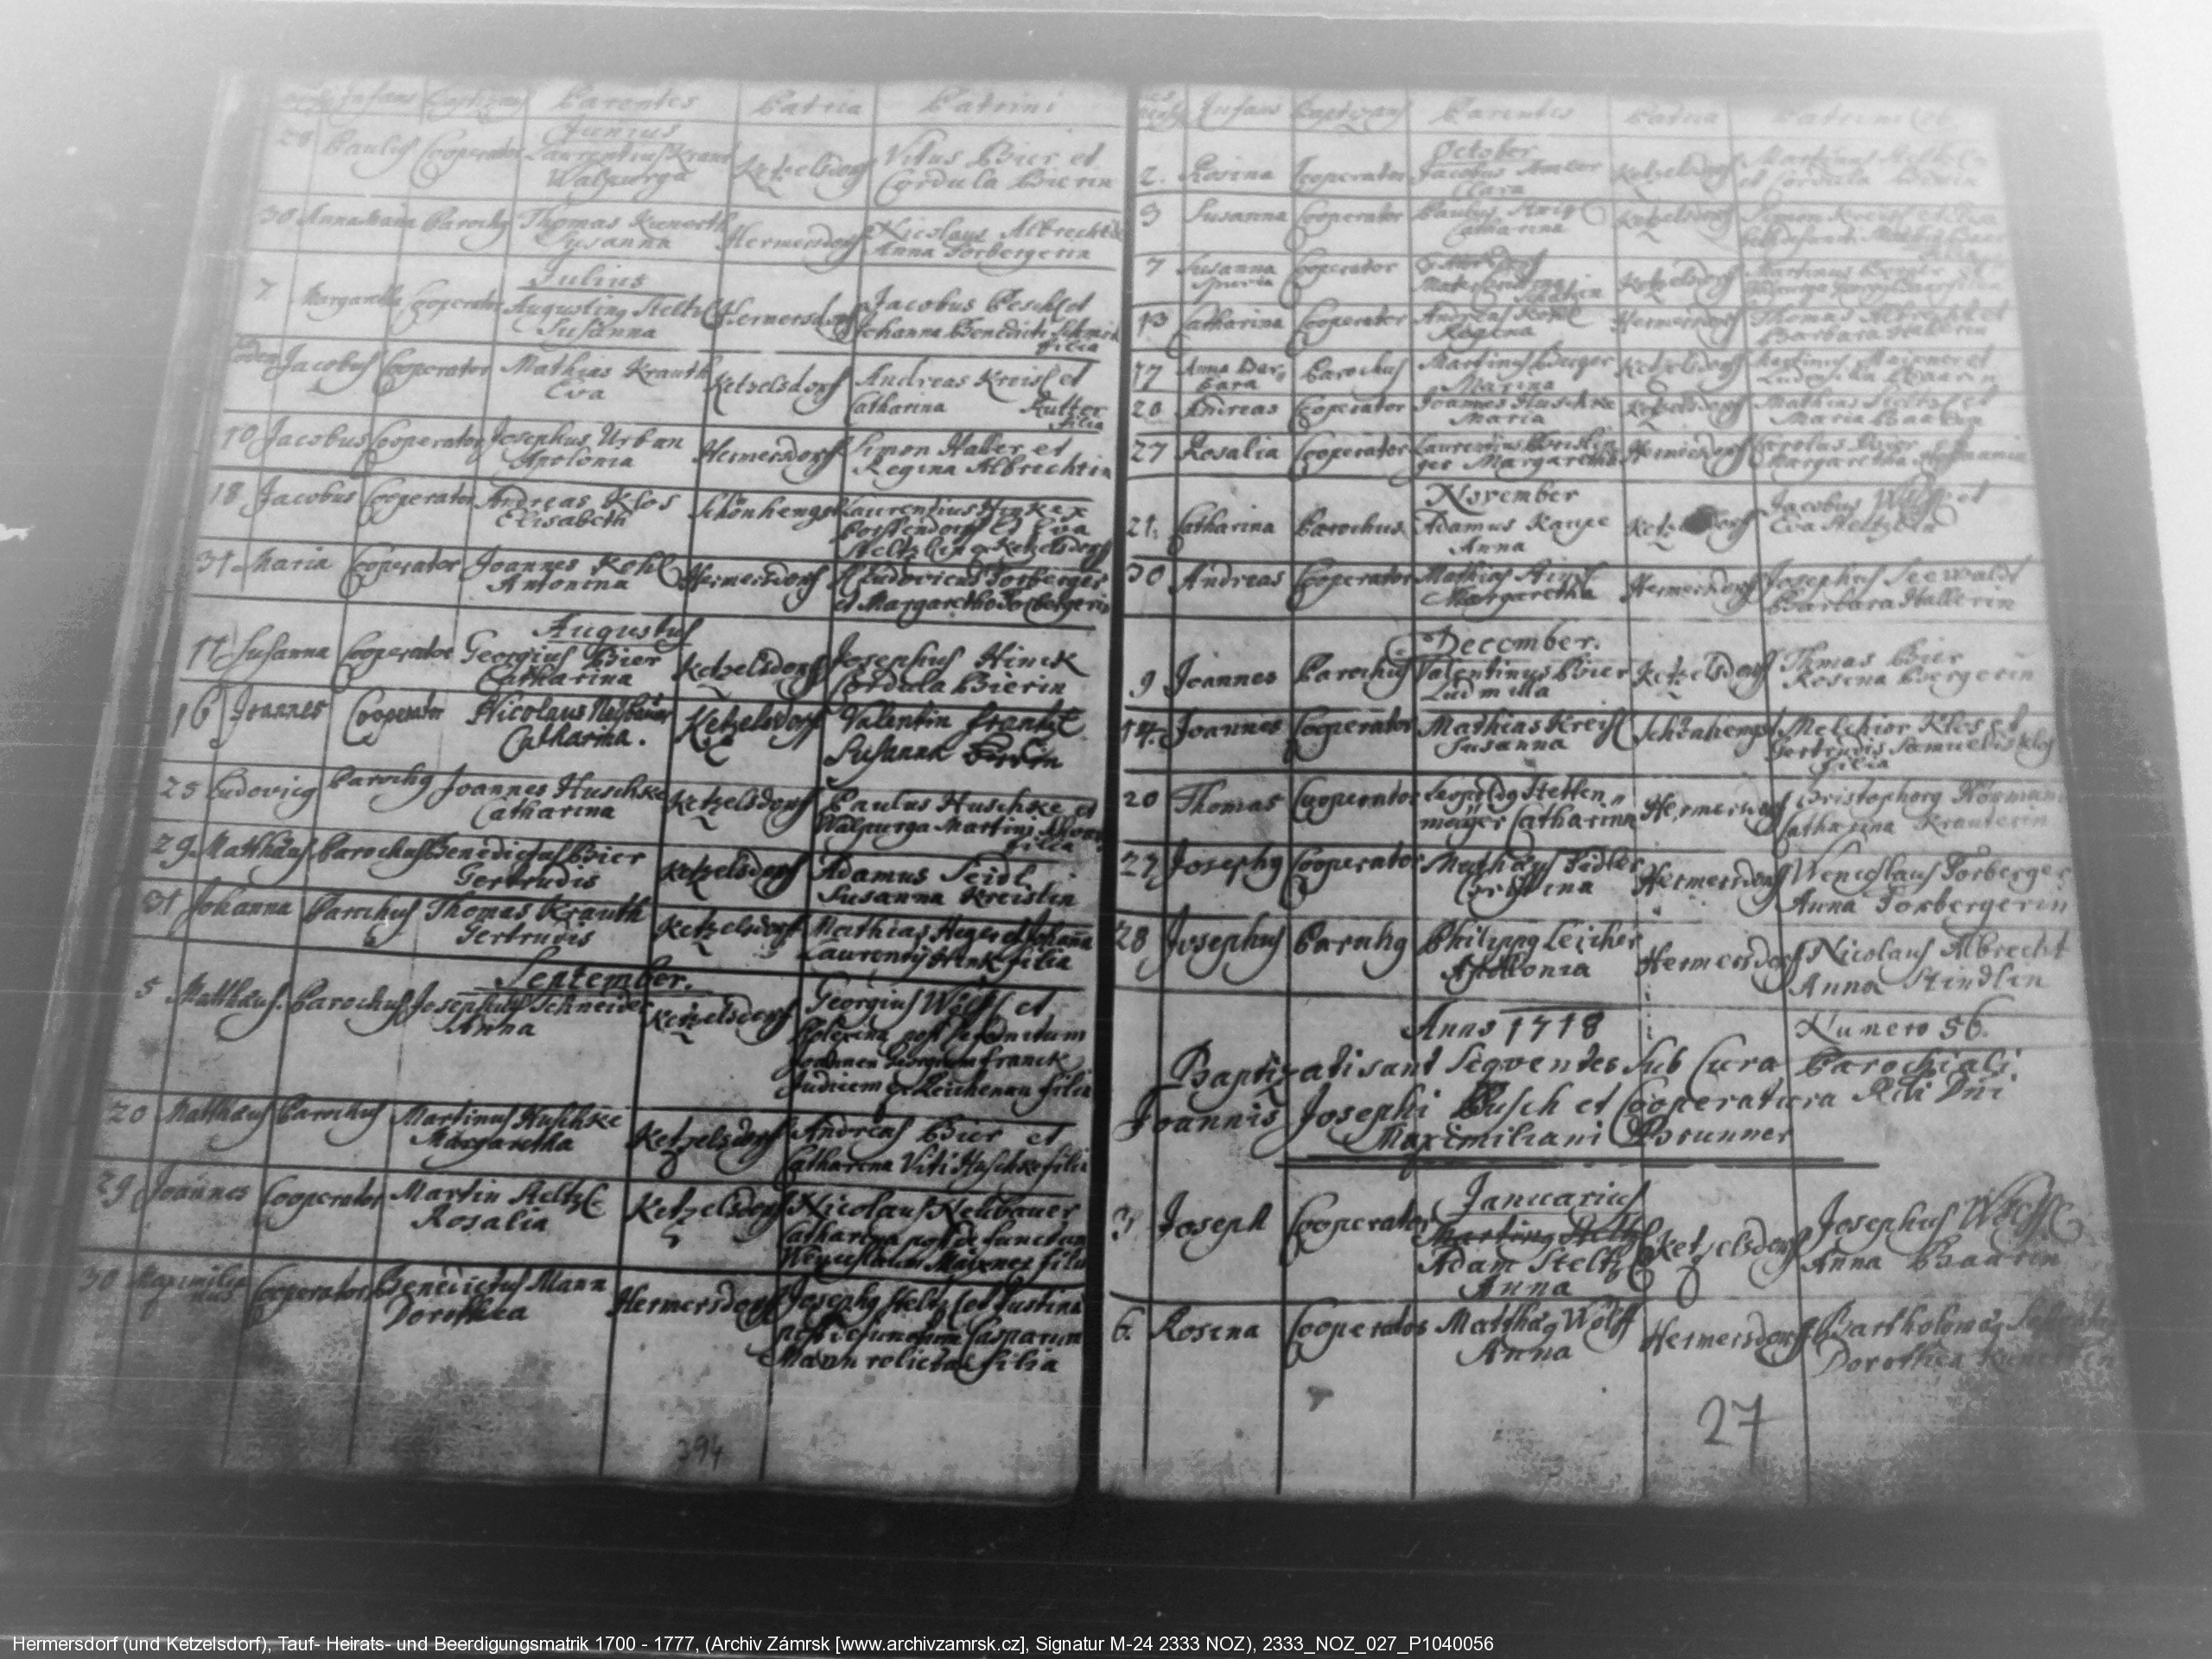 Infans Baptizans Parentes Patria Patrini
Junius
28 Paulus Cooperator Laurentius Kraut Ketzelsdorf Vitus Bier et
Walpurga Cordula Bierin
30 Anna Maria Parochg Thomas Kunerth Hermersdorf Nicolaus Albrecht et
Susanna Anna Forbergerin
Julius
7 Margaretha Cooperator Augusting Steltzl Hermersdorf Jacobus Peschl et
Susanna Johanna Benedicti Schmid
filia
Jacobus Cooperator Mathias Krauth Ketzelsdorf Andreas Kreisl et
Eva Catharina Kutter
filia
10 Jacobus Cooperator Josephus Urban Hermersdorf Simon Haller et
Apolonia Regina Albrechtin
18 Jacobus Cooperator Andreas Klos Schönhengst Laurentius Hinke ex
Elisabeth Eva
Steltzlin ex Ketzelsdorf
31 Maria Cooperator Joannes Kohl Hermersdorf Ludovicus Forberger
Antonina et Margaretha Forbergerin
Augustus
11 Susanna Cooperator Georgius Bier Ketzelsdorf Josephus Hinck
Catharina Cordula Bierin
16 Joannes Cooperator Nicolaus Neübauer Ketzelsdorf Valentin Frantzl
Catharina. Susanna
25 Ludovicg Parochg Joannes Huschke Ketzelsdorf Paulus Huschke et
Catharina Walpurga Martini
filia
29. Matthäus Parochus Benedictus Bier Ketzelsdorf Adamus Seidl
Gertrudis Susanna Kreislin
31 Johanna Parochus Thomas Krauth Ketzelsdorf Mathias Heger et Johanna
Gertrudis Laurentij Hink filia
September.
5 Matthäus. Parochus Josephus Schneider Ketzelsdorf Georgius Wolff et
Anna post defunctum
Joannem Georgium Franck
Judicem ex filia
20 Matthäus Parochus Martinus Huschke Ketzelsdorf Andreas Bier et
Margaretha Catharina Viti Huschke filia
29 Joannes Cooperator Martin Steltzl Ketzelsdorf Nicolaus Neübauer
Rosalia Catharina post defunctum
Wenceslaum Maixner filia
30 Maximilianus Cooperator Benedictus Mann Hermersdorf Josephg Steltzl et Justina
Dorothea post defunctum Casparum
Mann relicta filia
394
Infans Baptizans Parentes Patria Patrini
October
2. Rosina Cooperator Jacobus Ketzelsdorf Martinus
Clara et Cordula Bierin
3 Susanna Cooperator Paulus Ketzelsdorf Simon
Catharina
7 Susanna Cooperator Ketzelsdorf Martinus
spuria Mater
13 Catharina Cooperator Andreas Kohl Hermersdorf Thomas Albrecht et
Regina Barbara Hallerin
17 Anna Bar= Parochus Martinus Berger Ketzelsdorf Martinus Maixner et
bara Marina
20 Andreas Cooperator Joannes Huschke Ketzelsdorf Mathias Steltzl et
Maria Maria
27 Rosalia Cooperator Laurentius Hermersdorf Carolus
ger Margaretha Margaretha
November
21. Catharina Parochus Adamus Kaupe Ketzelsdorf Jacobus Wolff et
Anna Eva Steltzlin
30 Andreas Cooperator Mathias Hermersdorf Josephus Seewaldt
Margaretha Barbara Hallerin
December.
9 Joannes Parochus Valentinus Bier Ketzelsdorf Thomas Bier
Ludmilla Rosina Bergerin
14. Joannes Cooperator Mathias Kreisl Schönhengst Melchior Klos et
Susanna Gertrudis Samuelis Klos
filia
20 Thomas Cooperator Leopoldg Stetten Hermersdorf Cristophorg
meyer Catharina Catharina Krauterin
27 Josephg Cooperator Mathäus Fidler Hermersdorf Wenceslaus Forberger
Cristina Anna Forbergerin
28 Josephus Parochg Philippg Leicher Hermersdorf Nicolaus Albrecht
Apollonia Anna Stindlin
Anno 1718 Numero 56.
Baptizati sunt Seqventes sub Cura Parochiali
Joannis Josephi Pusch et Cooperatura Rdi Dni
Maximiliani Brunner
Januarius
3 Joseph Cooperator Marting Steltzl Ketzelsdorf Josephus Wolff
Adam Steltzl Anna Baarin
Anna
6. Rosina Cooperator Matthäg Wolff Hermersdorf Bartholomäg
Anna Dorothea
27
Hermersdorf (und Ketzelsdorf), Tauf- Heirats- und Beerdigungsmatrik 1700 - 1777, (Archiv Zámrsk [www.archivzamrsk.cz], Signatur M-24 2333 NOZ), 2333_NOZ_027_P1040056